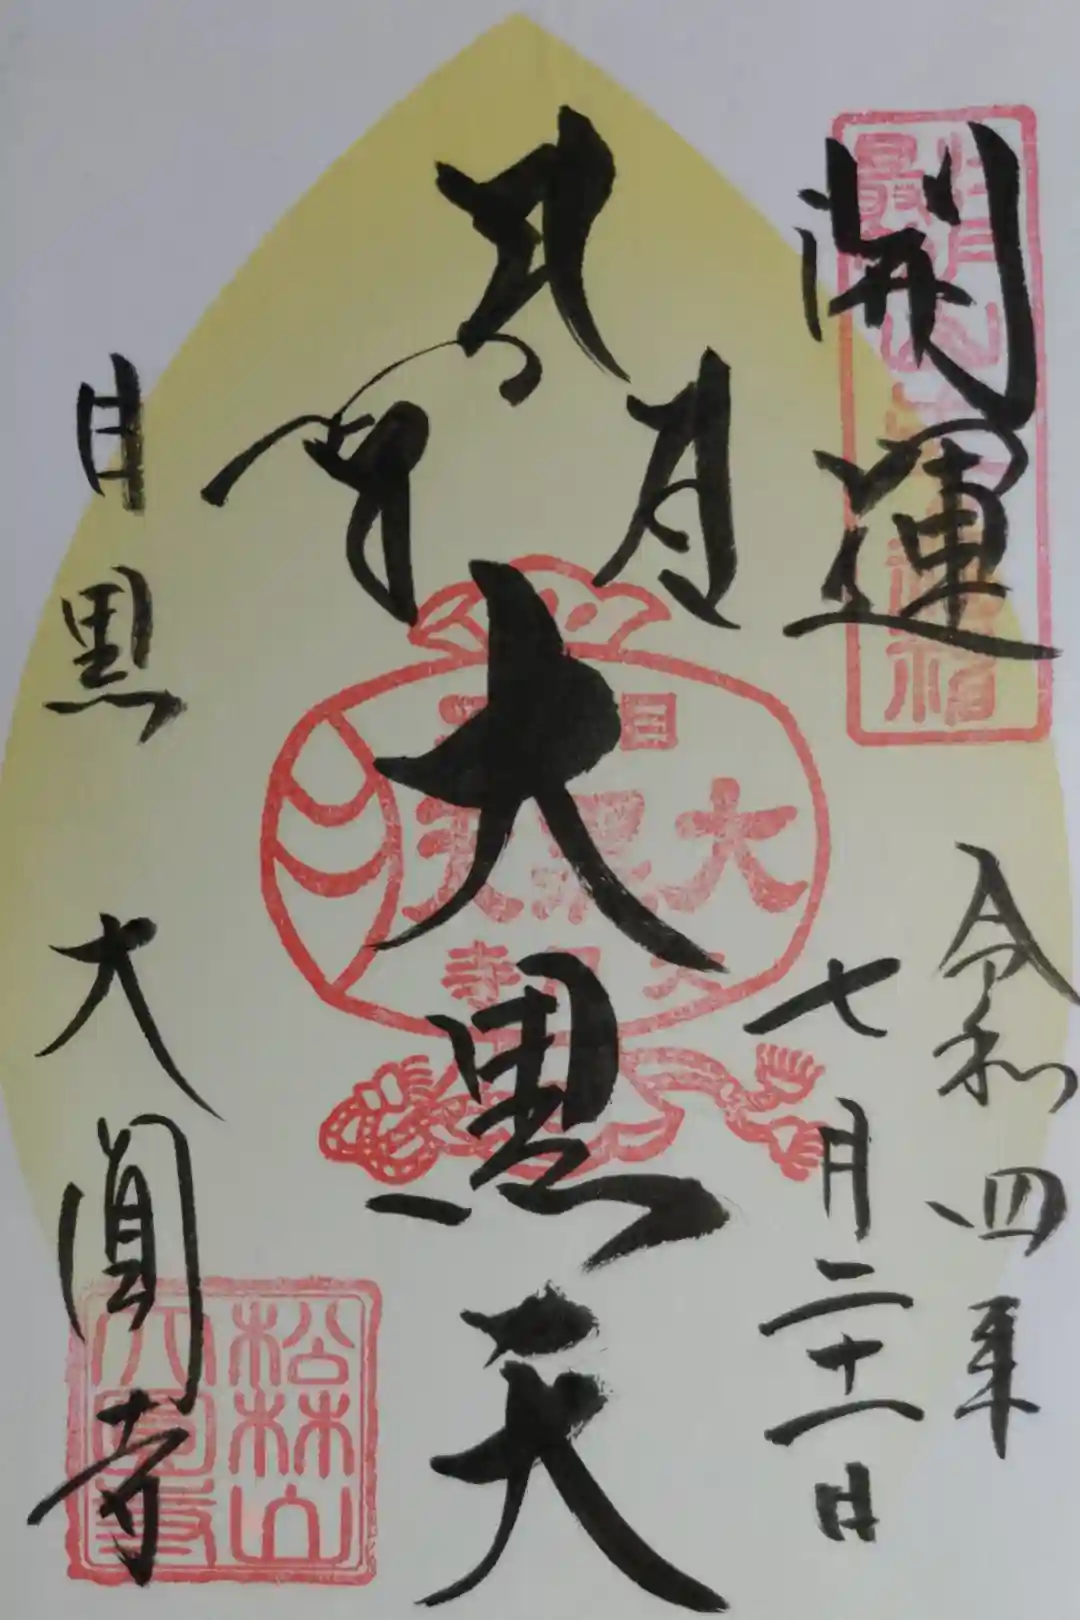 開運
令和四年
七月二十一日
大黒天
目黒
大圓寺
大黒天
松林山
大圓寺